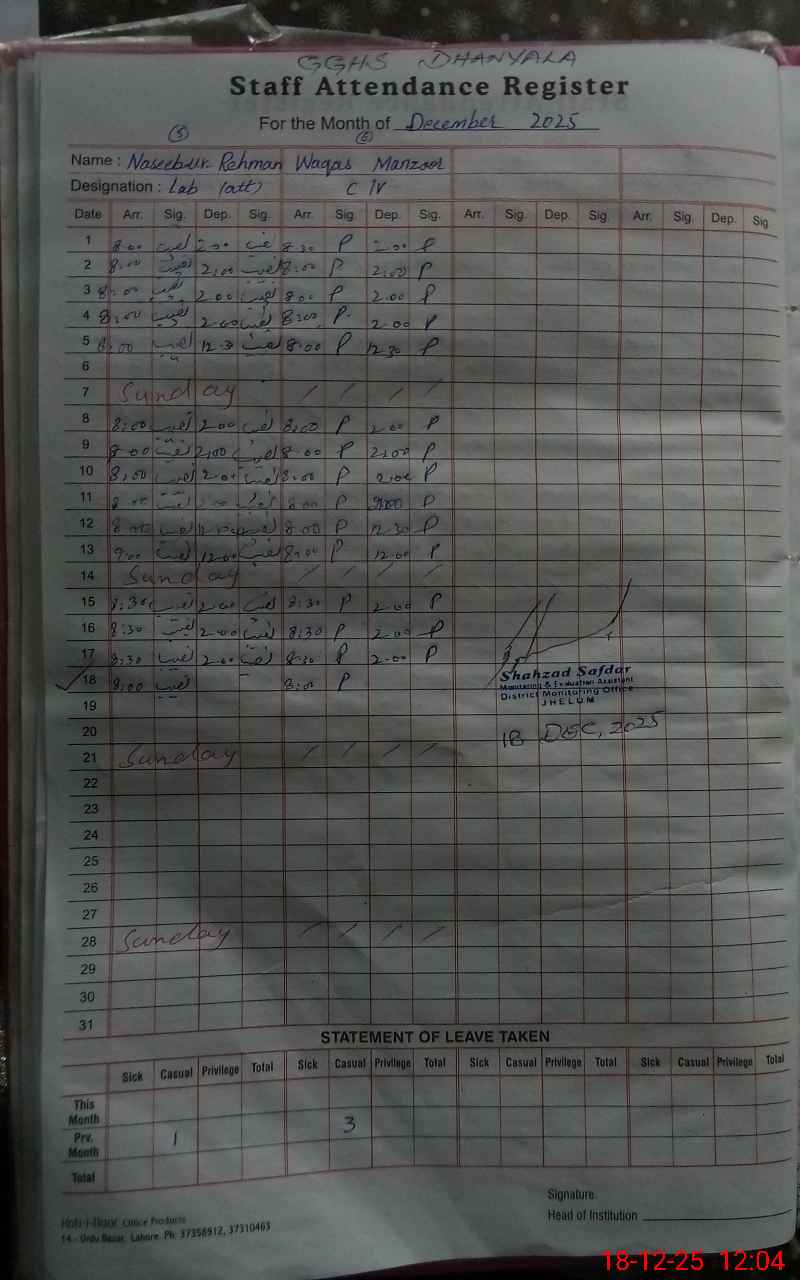 GGHS DHANYALA
Staff Attendance Register
For the Month of December 2025
(5) (6)
Name : Naseeb-ur-Rehman Waqas Manzoor
Designation : Lab (att) C IV
Date Arr. Sig. Dep. Sig. Arr. Sig. Dep. Sig. Arr. Sig. Dep. Sig. Arr. Sig. Dep. Sig
1 8:00 2:00 8:30 P 2:00 P
2 8:00 2:00 8:00 P 2:00 P
3 8:00 2:00 8:00 P 2:00 P
4 8:00 2:00 8:00 P 2:00 P
5 8:00 12:30 8:00 P 12:30 P
6
7 Sunday / / / /
8 8:00 2:00 8:00 P 2:00 P
9 8:00 2:00 8:00 P 2:00 P
10 8:00 2:00 8:00 P 2:00 P
11 8:00 8:00 P P
12 8:00 8:00 P 12:30 P
13 12:00 8:00 P 12:00 P
14 Sunday / / / /
15 8:30 2:00 8:30 P 2:00 P
16 8:30 2:00 8:30 P 2:00 P
17 8:30 2:00 8:30 P 2:00 P
18 8:00 8:00 P
Shahzad Safdar
Monitoring & Evaluation Assistant
District Monitoring Office
JHELUM
19
20
18 DEC, 2025
21 Sunday / / / /
22
23
24
25
26
27
28 Sunday / / / /
29
30
31
STATEMENT OF LEAVE TAKEN
Sick Casual Privilege Total Sick Casual Privilege Total Sick Casual Privilege Total Sick Casual Privilege Total
This Month
Prv. Month 1 3
Total
Signature.
Head of Institution
Office Products
14 - Urdu Bazar, Lahore. Ph: 37358912, 37310463
18-12-25 12:04